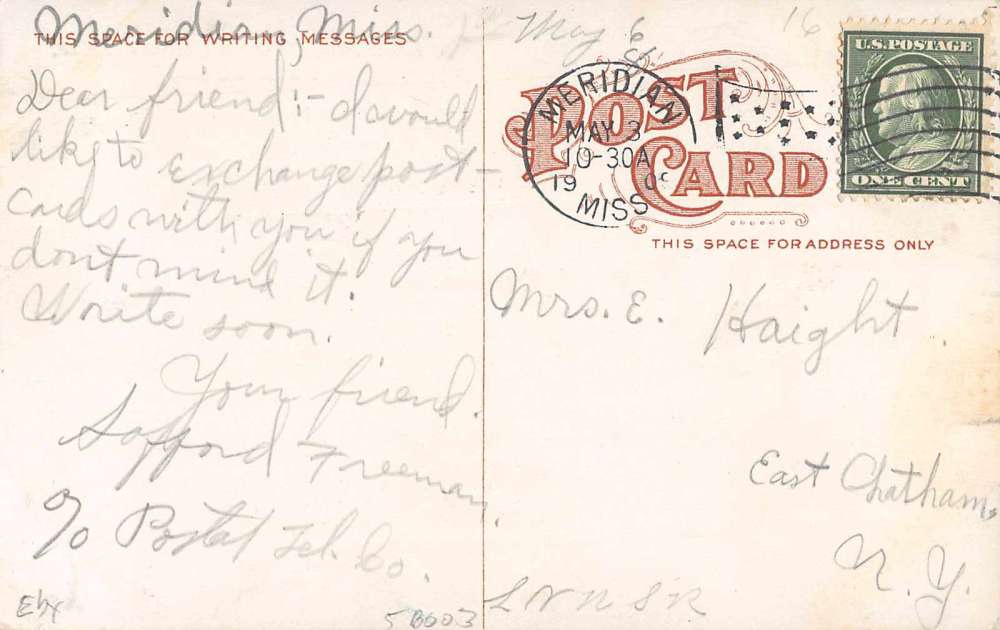 Meridian, Miss.
THIS SPACE FOR WRITING MESSAGES
Dear friend:- I would
like to exchange post-
cards with you if you
don't mind it.
Write soon.
Your friend.
Safford Freeman.
c/o Postal Tel. Co.
5 B003
May 6 16
POST CARD
MERIDIAN
MAY 3
10-30A
19
MISS
U.S. POSTAGE
ONE CENT
THIS SPACE FOR ADDRESS ONLY
Mrs. E. Haight.
East Chatham,
N. Y.